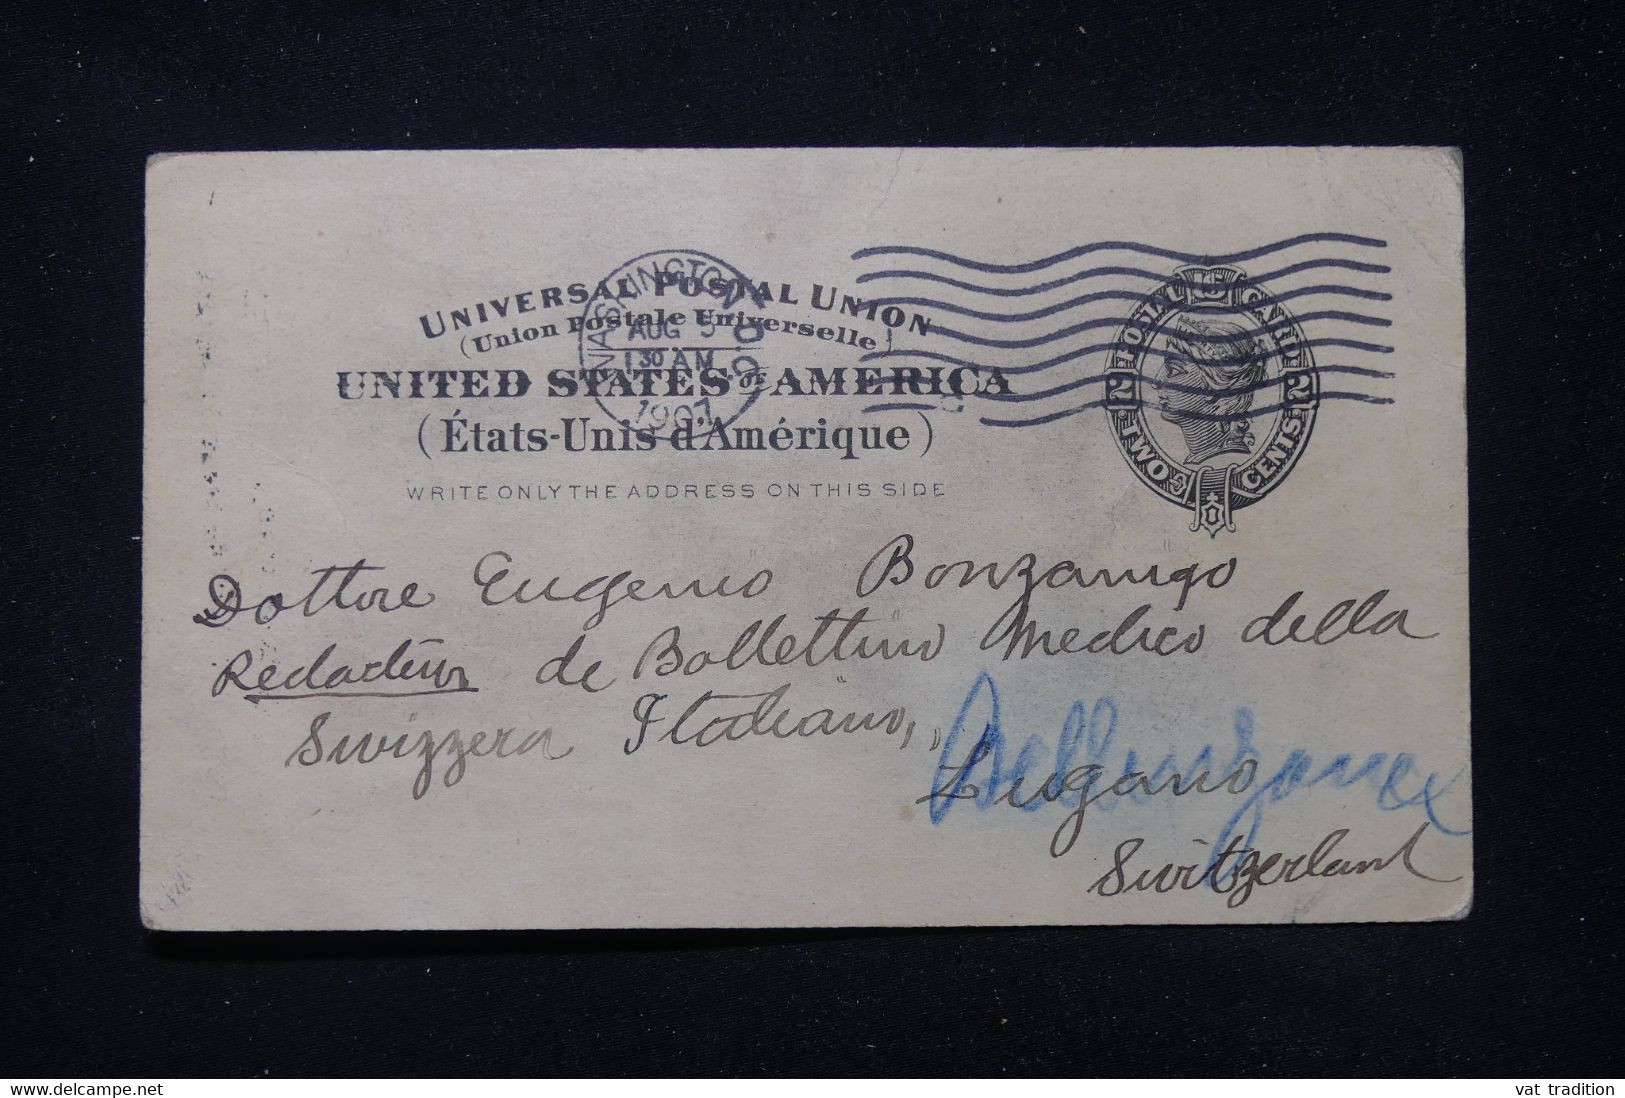 UNIVERSAL POSTAL UNION
(Union Postale Universelle)
UNITED STATES OF AMERICA
(États-Unis d'Amérique)
WRITE ONLY THE ADDRESS ON THIS SIDE
WASHINGTON, D.C.
AUG 5
1 30 AM
1907
POSTAL CARD
2 2
TWO CENTS
U S
Dottore Eugenio Bonzanigo
de Bollettino Medico della
Svizzera Italiano,
Lugano
Bellinzona
Switzerland
www.delcampe.net
vat tradition